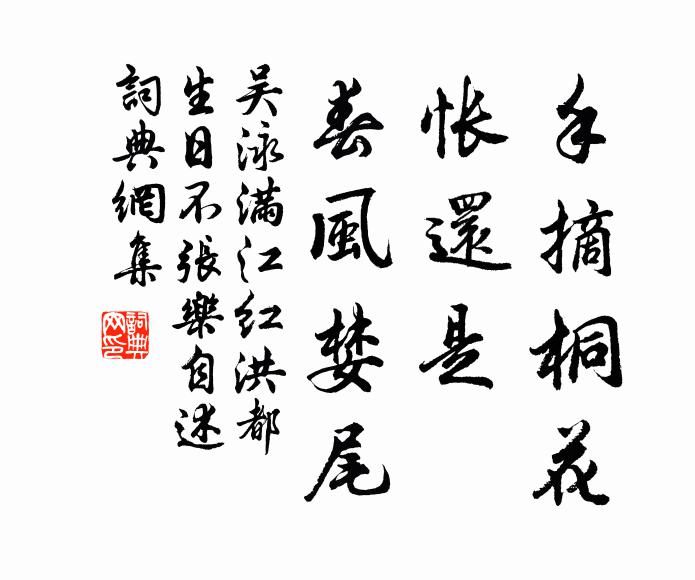 手摘桐花
悵還是
春風婪尾
吴泳满江红洪都
生日不張樂自述
詞典網集
詞典
网印